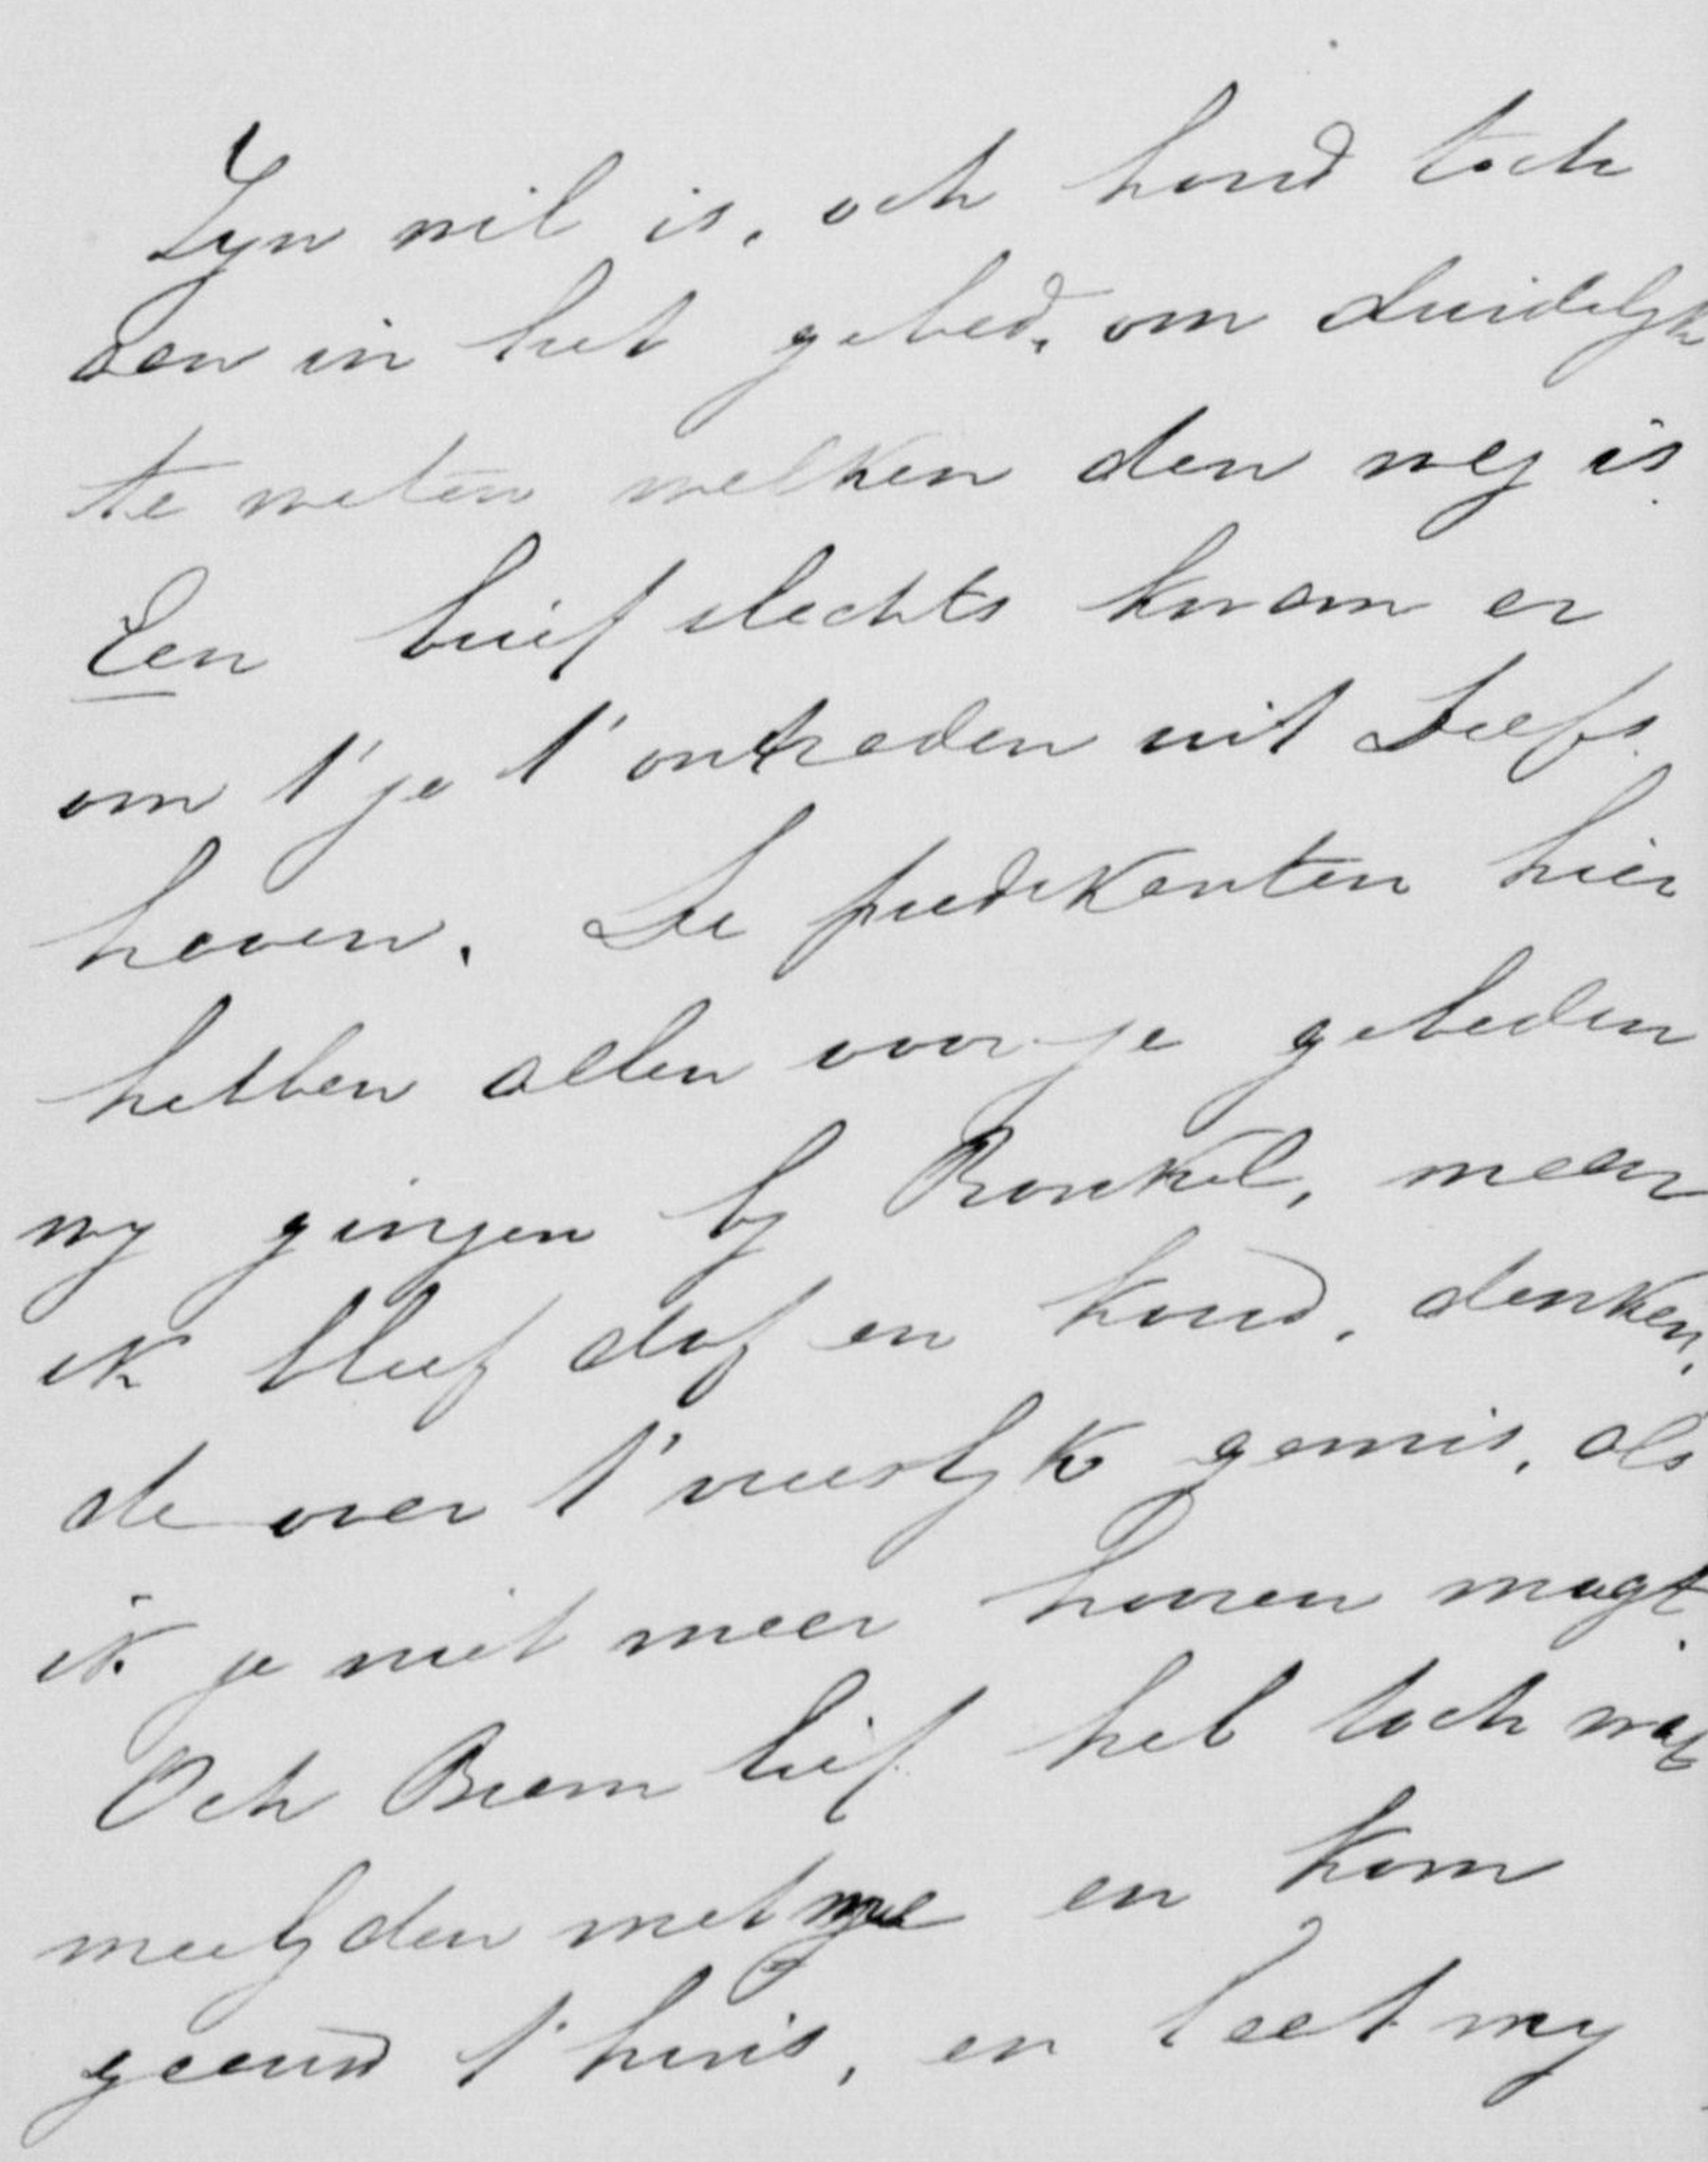 Zyn wil is, och houd toch
aan in het gebed, om duidelyk
te weten welken den weg is.
Een brief slechts kwam er
om 't je t' ontraden uit Delfs
haven. De predikanten hier
hebben allen voor je gebeden
wy gingen by Ronkel, maar
ik bleef dof en koud, denken,
de over 't vreeslyk gemis, als
ik je niet meer hooren mogt.
Och Bram lief heb toch wat
meelyden met me en kom
gaauw t'huis, en laat my